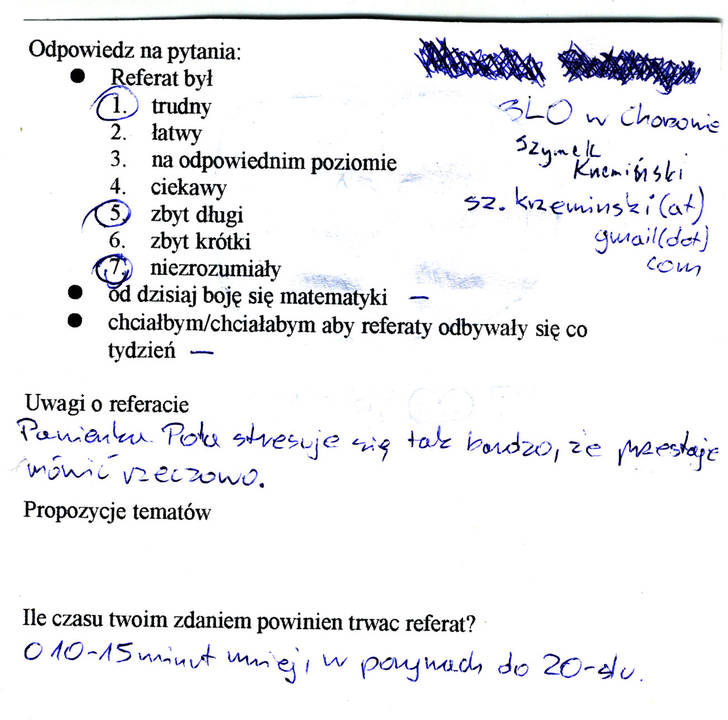 Odpowiedz na pytania:
● Referat był
1. trudny
2. łatwy
3. na odpowiednim poziomie
4. ciekawy
5. zbyt długi
6. zbyt krótki
7. niezrozumiały
● od dzisiaj boję się matematyki —
● chciałbym/chciałabym aby referaty odbywały się co
tydzień —
3LO w Chorzowie
Szymek
sz.krzeminski(at)
gmail(dot)
com
Uwagi o referacie
Panienka Pola stresuje się tak bardzo, że przestaje
mówić rzeczowo.
Propozycje tematów
Ile czasu twoim zdaniem powinien trwac referat?
O 10-15 minut mniej, w porywach do 20-stu.